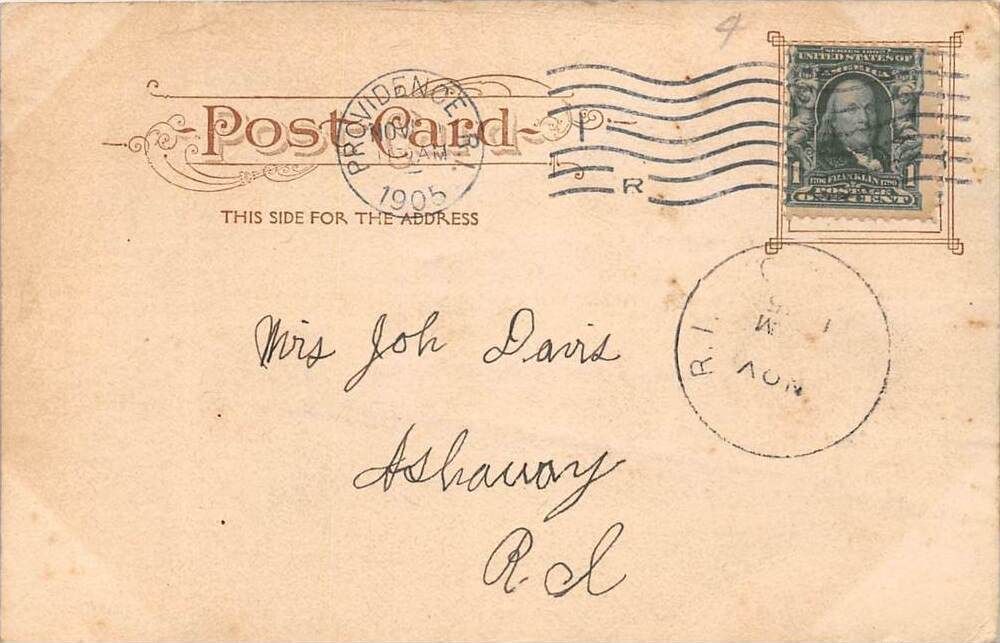 4
Post Card
PROVIDENCE, R.I.
NOV
AM
1905
R
SERIES 1902
UNITED STATES OF
AMERICA
1706 FRANKLIN 1790
1 POSTAGE 1
ONE CENT
THIS SIDE FOR THE ADDRESS
R.I.
NOV
Mrs Joh Davis
Ashaway
R I